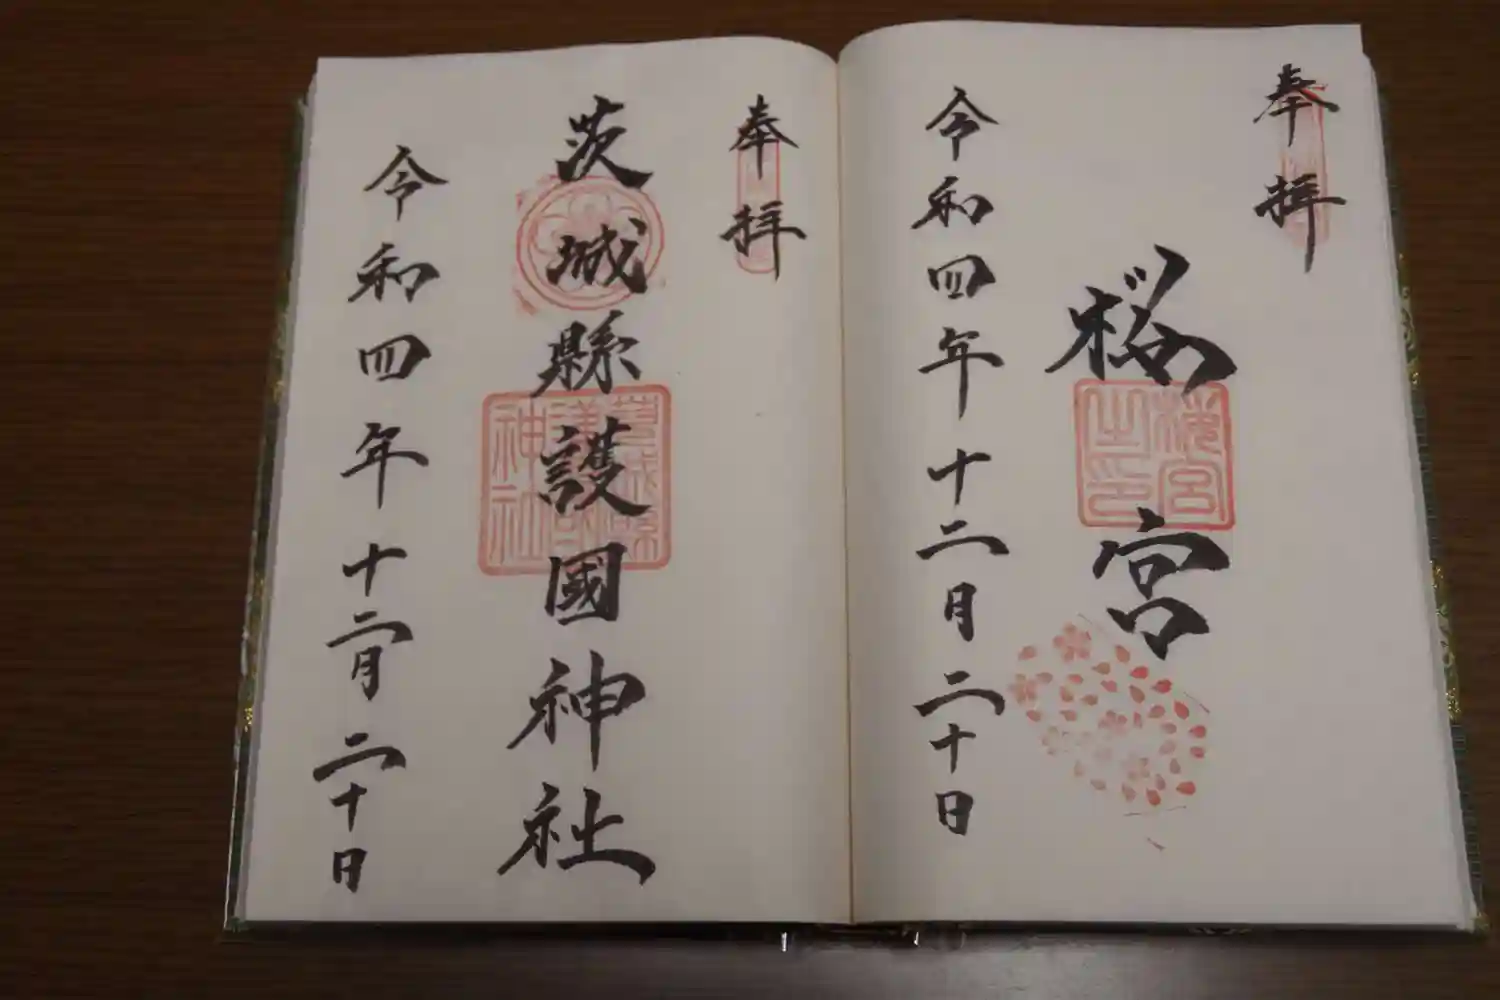 奉拝
桜宮
櫻宮之印
令和四年十二月二十日
奉拝
茨城縣護國神社
茨城縣護國神社
令和四年十二月二十日